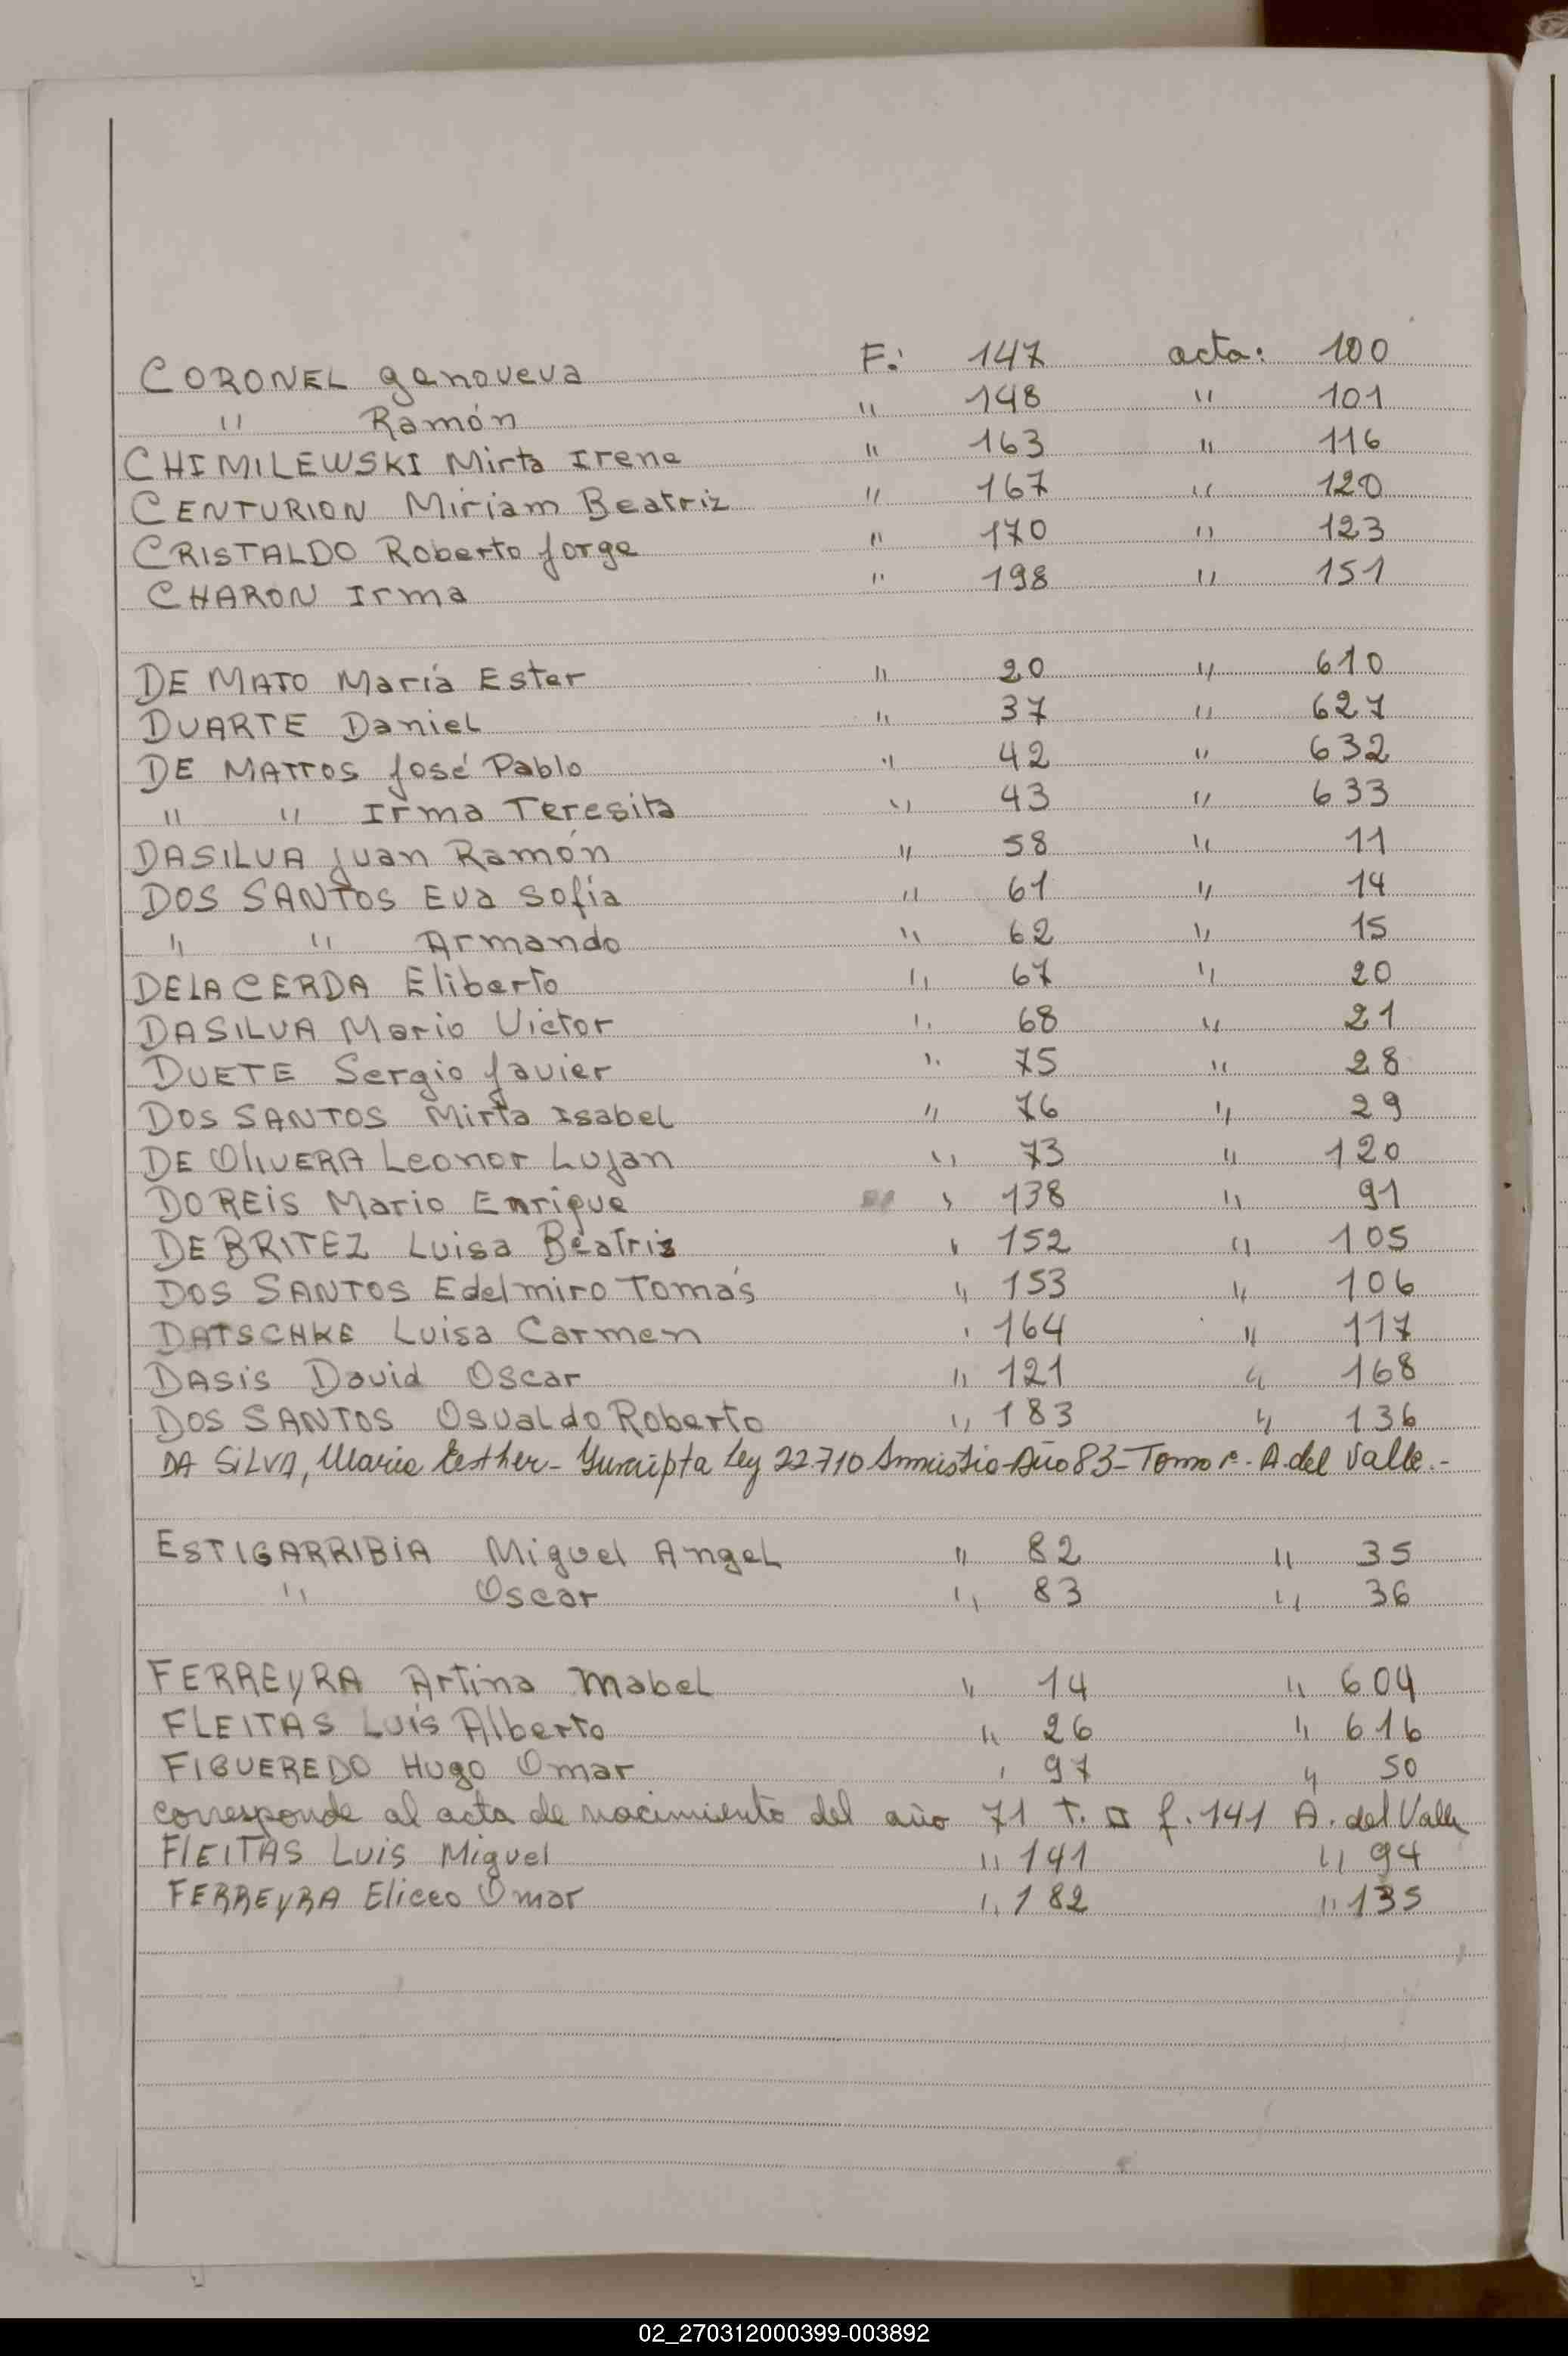 CORONEL Genoveva F.: 147 acta: 100
" Ramón " 148 " 101
CHIMILEWSKI Mirta Irene " 163 " 116
CENTURION Miriam Beatriz " 167 " 120
CRISTALDO Roberto Jorge " 170 " 123
CHARON Irma " 198 " 151
DE MATO María Ester " 20 " 610
DUARTE Daniel " 37 " 627
DE MATTOS José Pablo " 42 " 632
" " Irma Teresita " 43 " 633
DASILVA Juan Ramón " 58 " 11
DOS SANTOS Eva Sofía " 61 " 14
" " Armando " 62 " 15
DELACERDA Eliberto " 67 " 20
DASILVA Mario Victor " 68 " 21
DUETE Sergio Javier " 75 " 28
DOS SANTOS Mirta Isabel " 76 " 29
DE OLIVERA Leonor Lujan " 73 " 120
DOREIS Mario Enrique " 138 " 91
DE BRITEZ Luisa Beatris " 152 " 105
DOS SANTOS Edelmiro Tomás " 153 " 106
DATSCHKE Luisa Carmen " 164 " 117
DASIS David Oscar " 121 " 168
DOS SANTOS Osvaldo Roberto " 183 " 136
DA SILVA, Maria Esther - Ley 22.710 Año 83 - Tomo - A. del Valle.-
ESTIGARRIBIA Miguel Angel " 82 " 35
" Oscar " 83 " 36
FERREYRA Artina Mabel " 14 " 604
FLEITAS Luís Alberto " 26 " 616
FIGUEREDO Hugo Omar " 97 " 50
corresponde al acta de nacimiento del año 71 T. f. 141 A. del Valle
FLEITAS Luis Miguel " 141 " 94
FERREYRA Eliceo Omar " 182 " 135
02_270312000399-003892